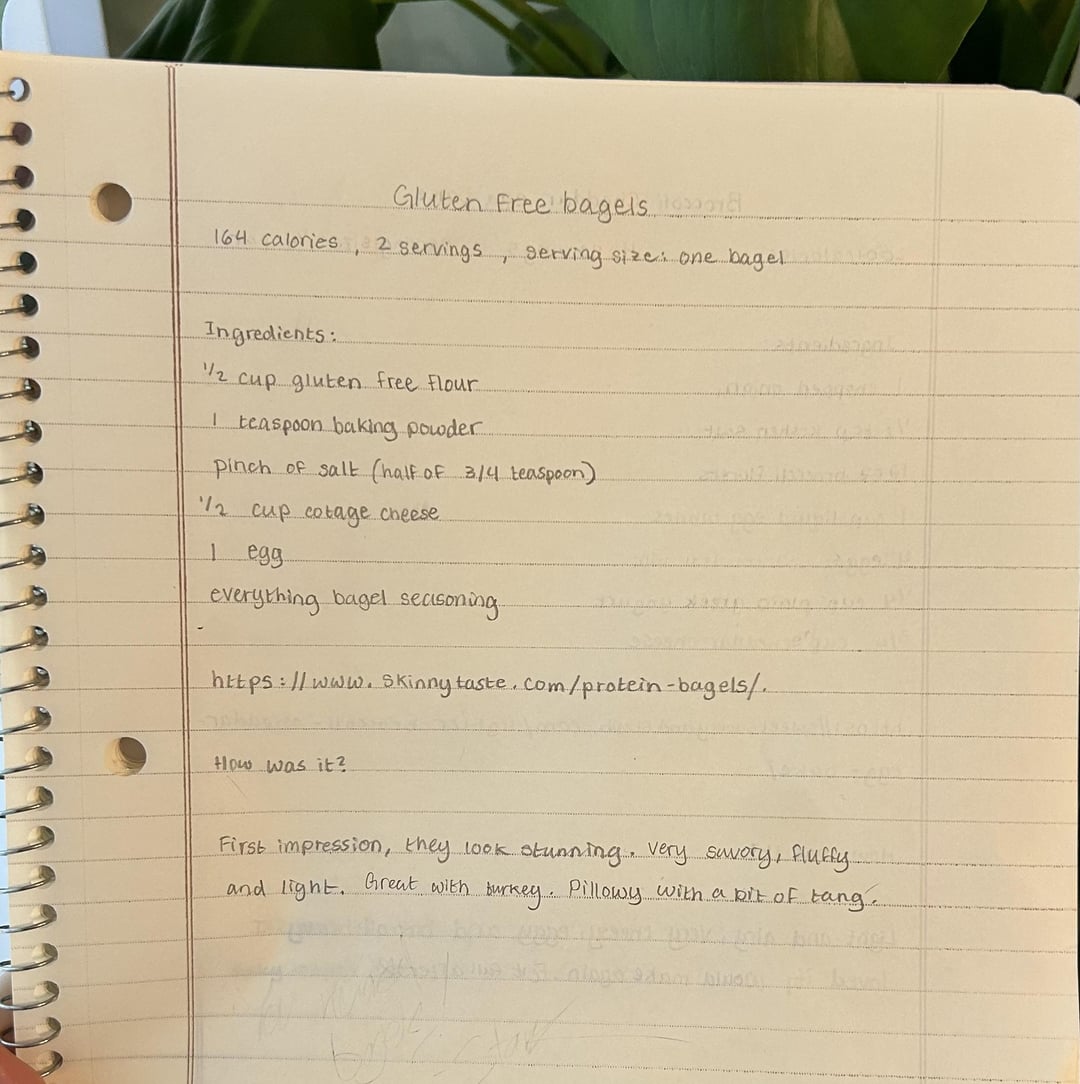 Gluten Free bagels
164 calories, 2 servings, serving size: one bagel
Ingredients:
1/2 cup gluten free flour
1 teaspoon baking powder
pinch of salt (half of 3/4 teaspoon)
1/2 cup cotage cheese
1 egg
everything bagel seasoning
-
https://www.skinnytaste.com/protein-bagels/.
How was it?
First impression, they look stunning. Very savory, fluffy
and light. Great with turkey. Pillowy with a bit of tang.